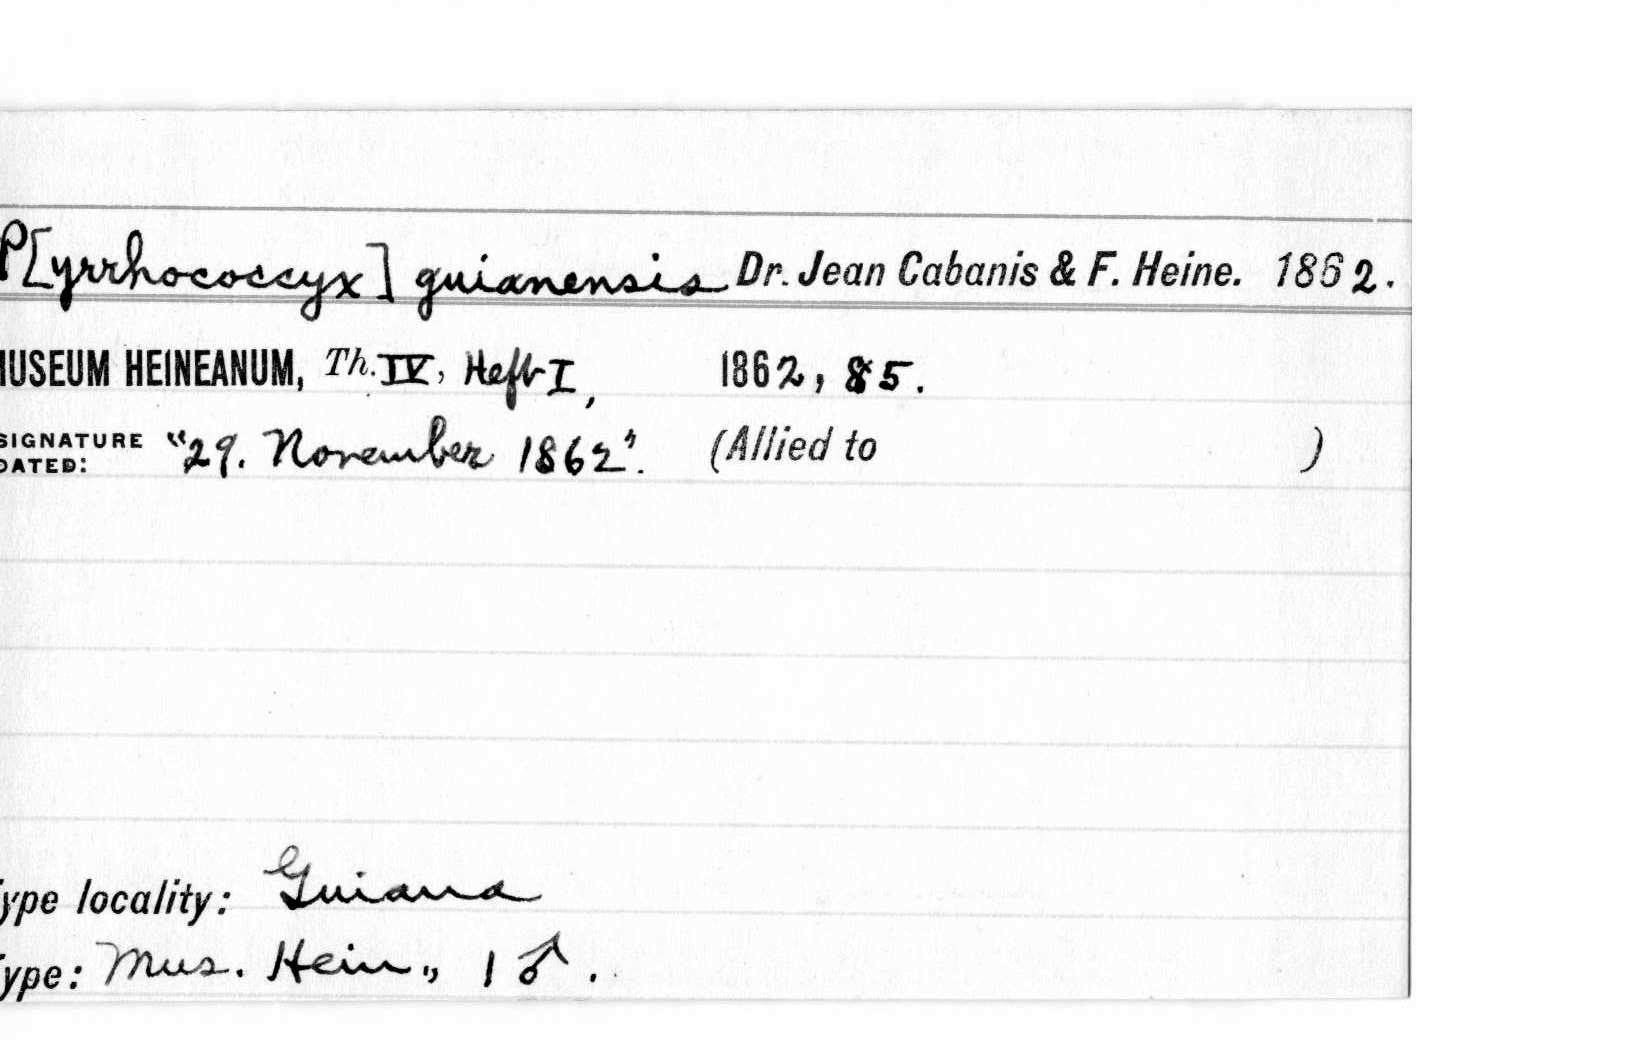 P[yrrhococcyx] guianensis Dr. Jean Cabanis & F. Heine. 1862.
MUSEUM HEINEANUM, Th. IV, Heft I, 1862, 85.
SIGNATURE DATED: "29. November 1862". (Allied to )
Type locality: Guiana
Type: Mus. Hein., 1 ♂.